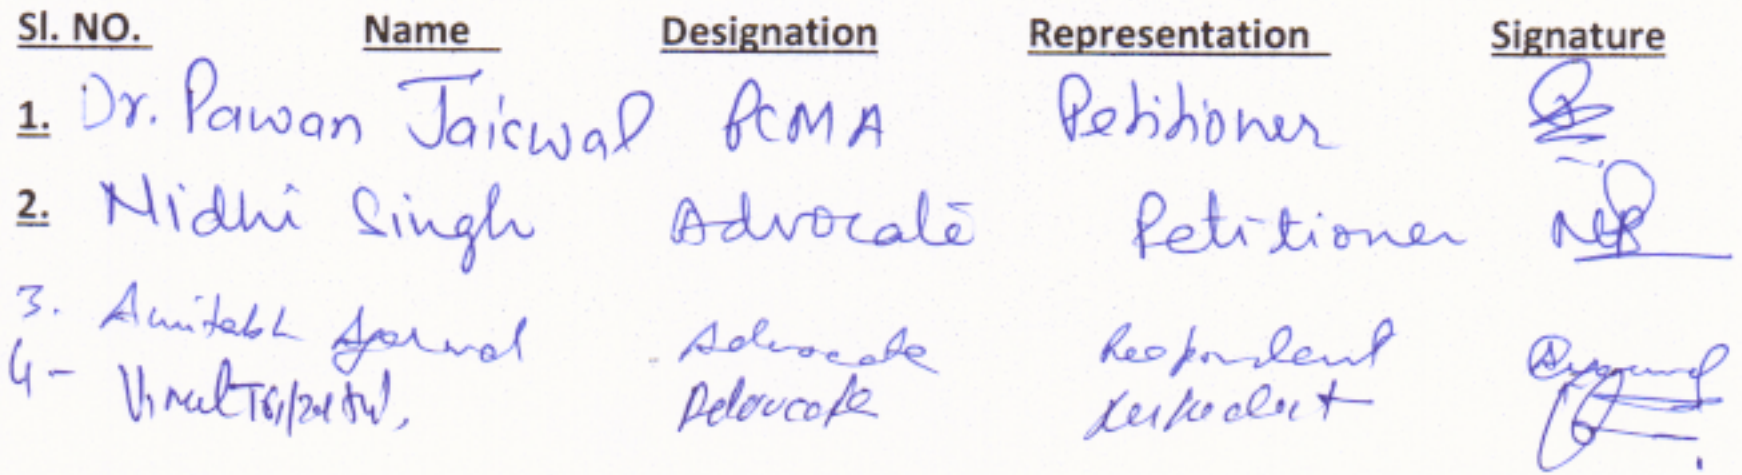 Sl. NO. Name Designation Representation Signature
1. Dr. Pawan Jaiswal PCMA Petitioner
2. Nidhi Singh Advocate Petitioner
3. Amitabh Agarwal Advocate Respondent
4- Vimal Advocate Respondent